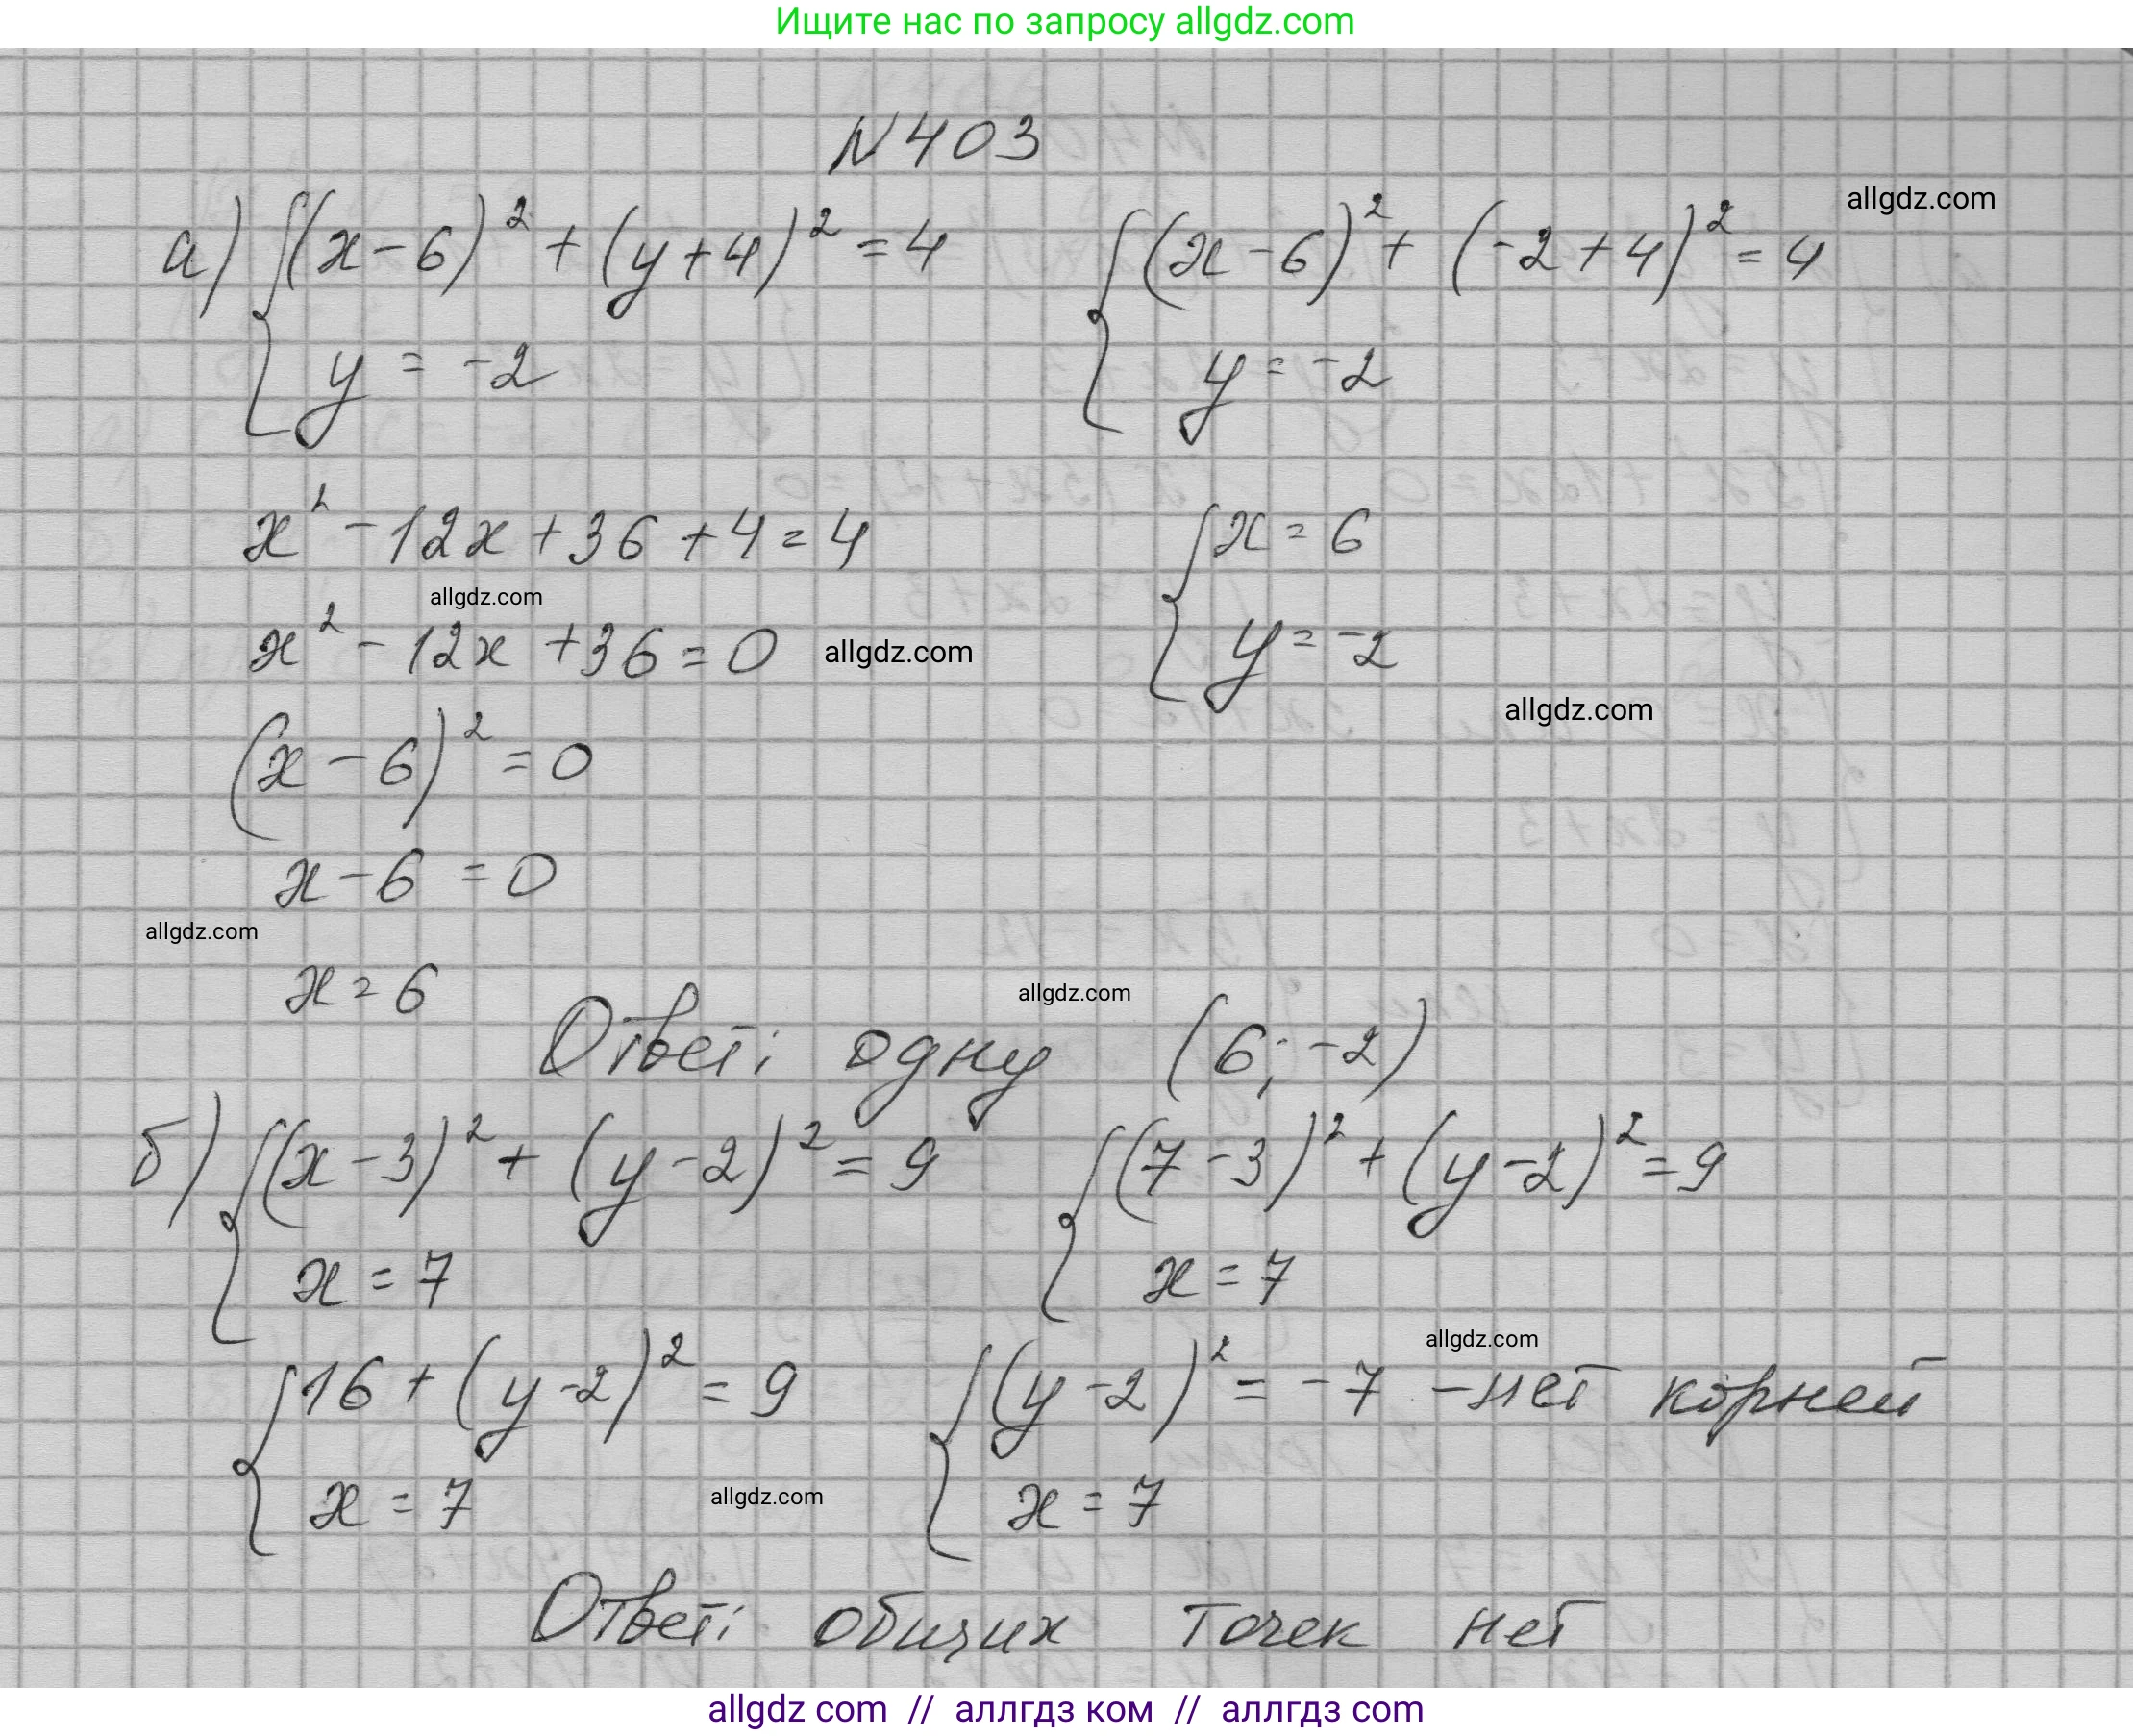 Ищите нас по запросу allgdz.com
N403
allgdz.com
а) {(x-6)² + (y+4)² = 4 {(x-6)² + (-2+4)² = 4
y = -2 y = -2
x² - 12x + 36 + 4 = 4 {x = 6
allgdz.com
x² - 12x + 36 = 0 allgdz.com y = -2
allgdz.com
(x - 6)² = 0
x - 6 = 0
allgdz.com
x = 6
allgdz.com
Ответ: одну (6; -2)
б) {(x-3)² + (y-2)² = 9 {(7-3)² + (y-2)² = 9
x = 7 x = 7
allgdz.com
{16 + (y-2)² = 9 {(y-2)² = -7 - нет корней
x = 7 allgdz.com x = 7
Ответ: общих точек нет
allgdz com // аллгдз ком // аллгдз com